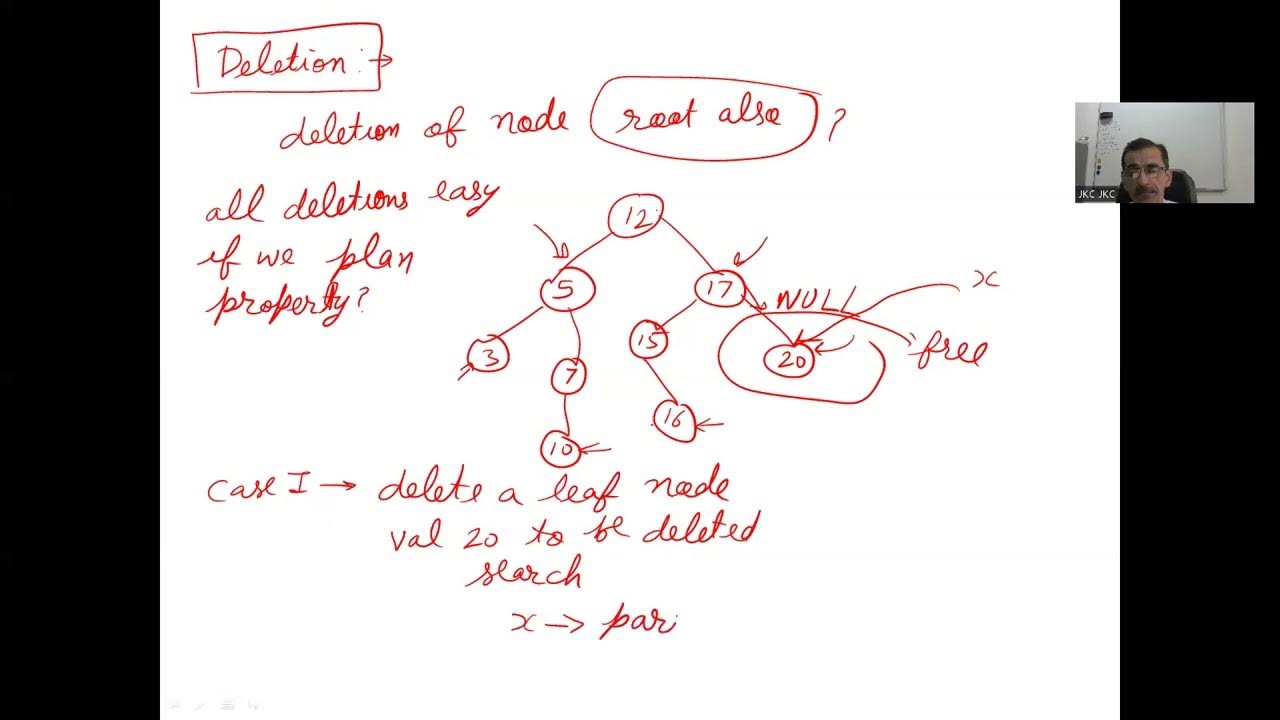 Deletion :→
deletion of node root also ?
all deletions easy
if we plan
property?
12
5
17
NULL
x
3
7
15
20
free
10
16
case I → delete a leaf node
val 20 to be deleted
search
x → par
JKC JKC